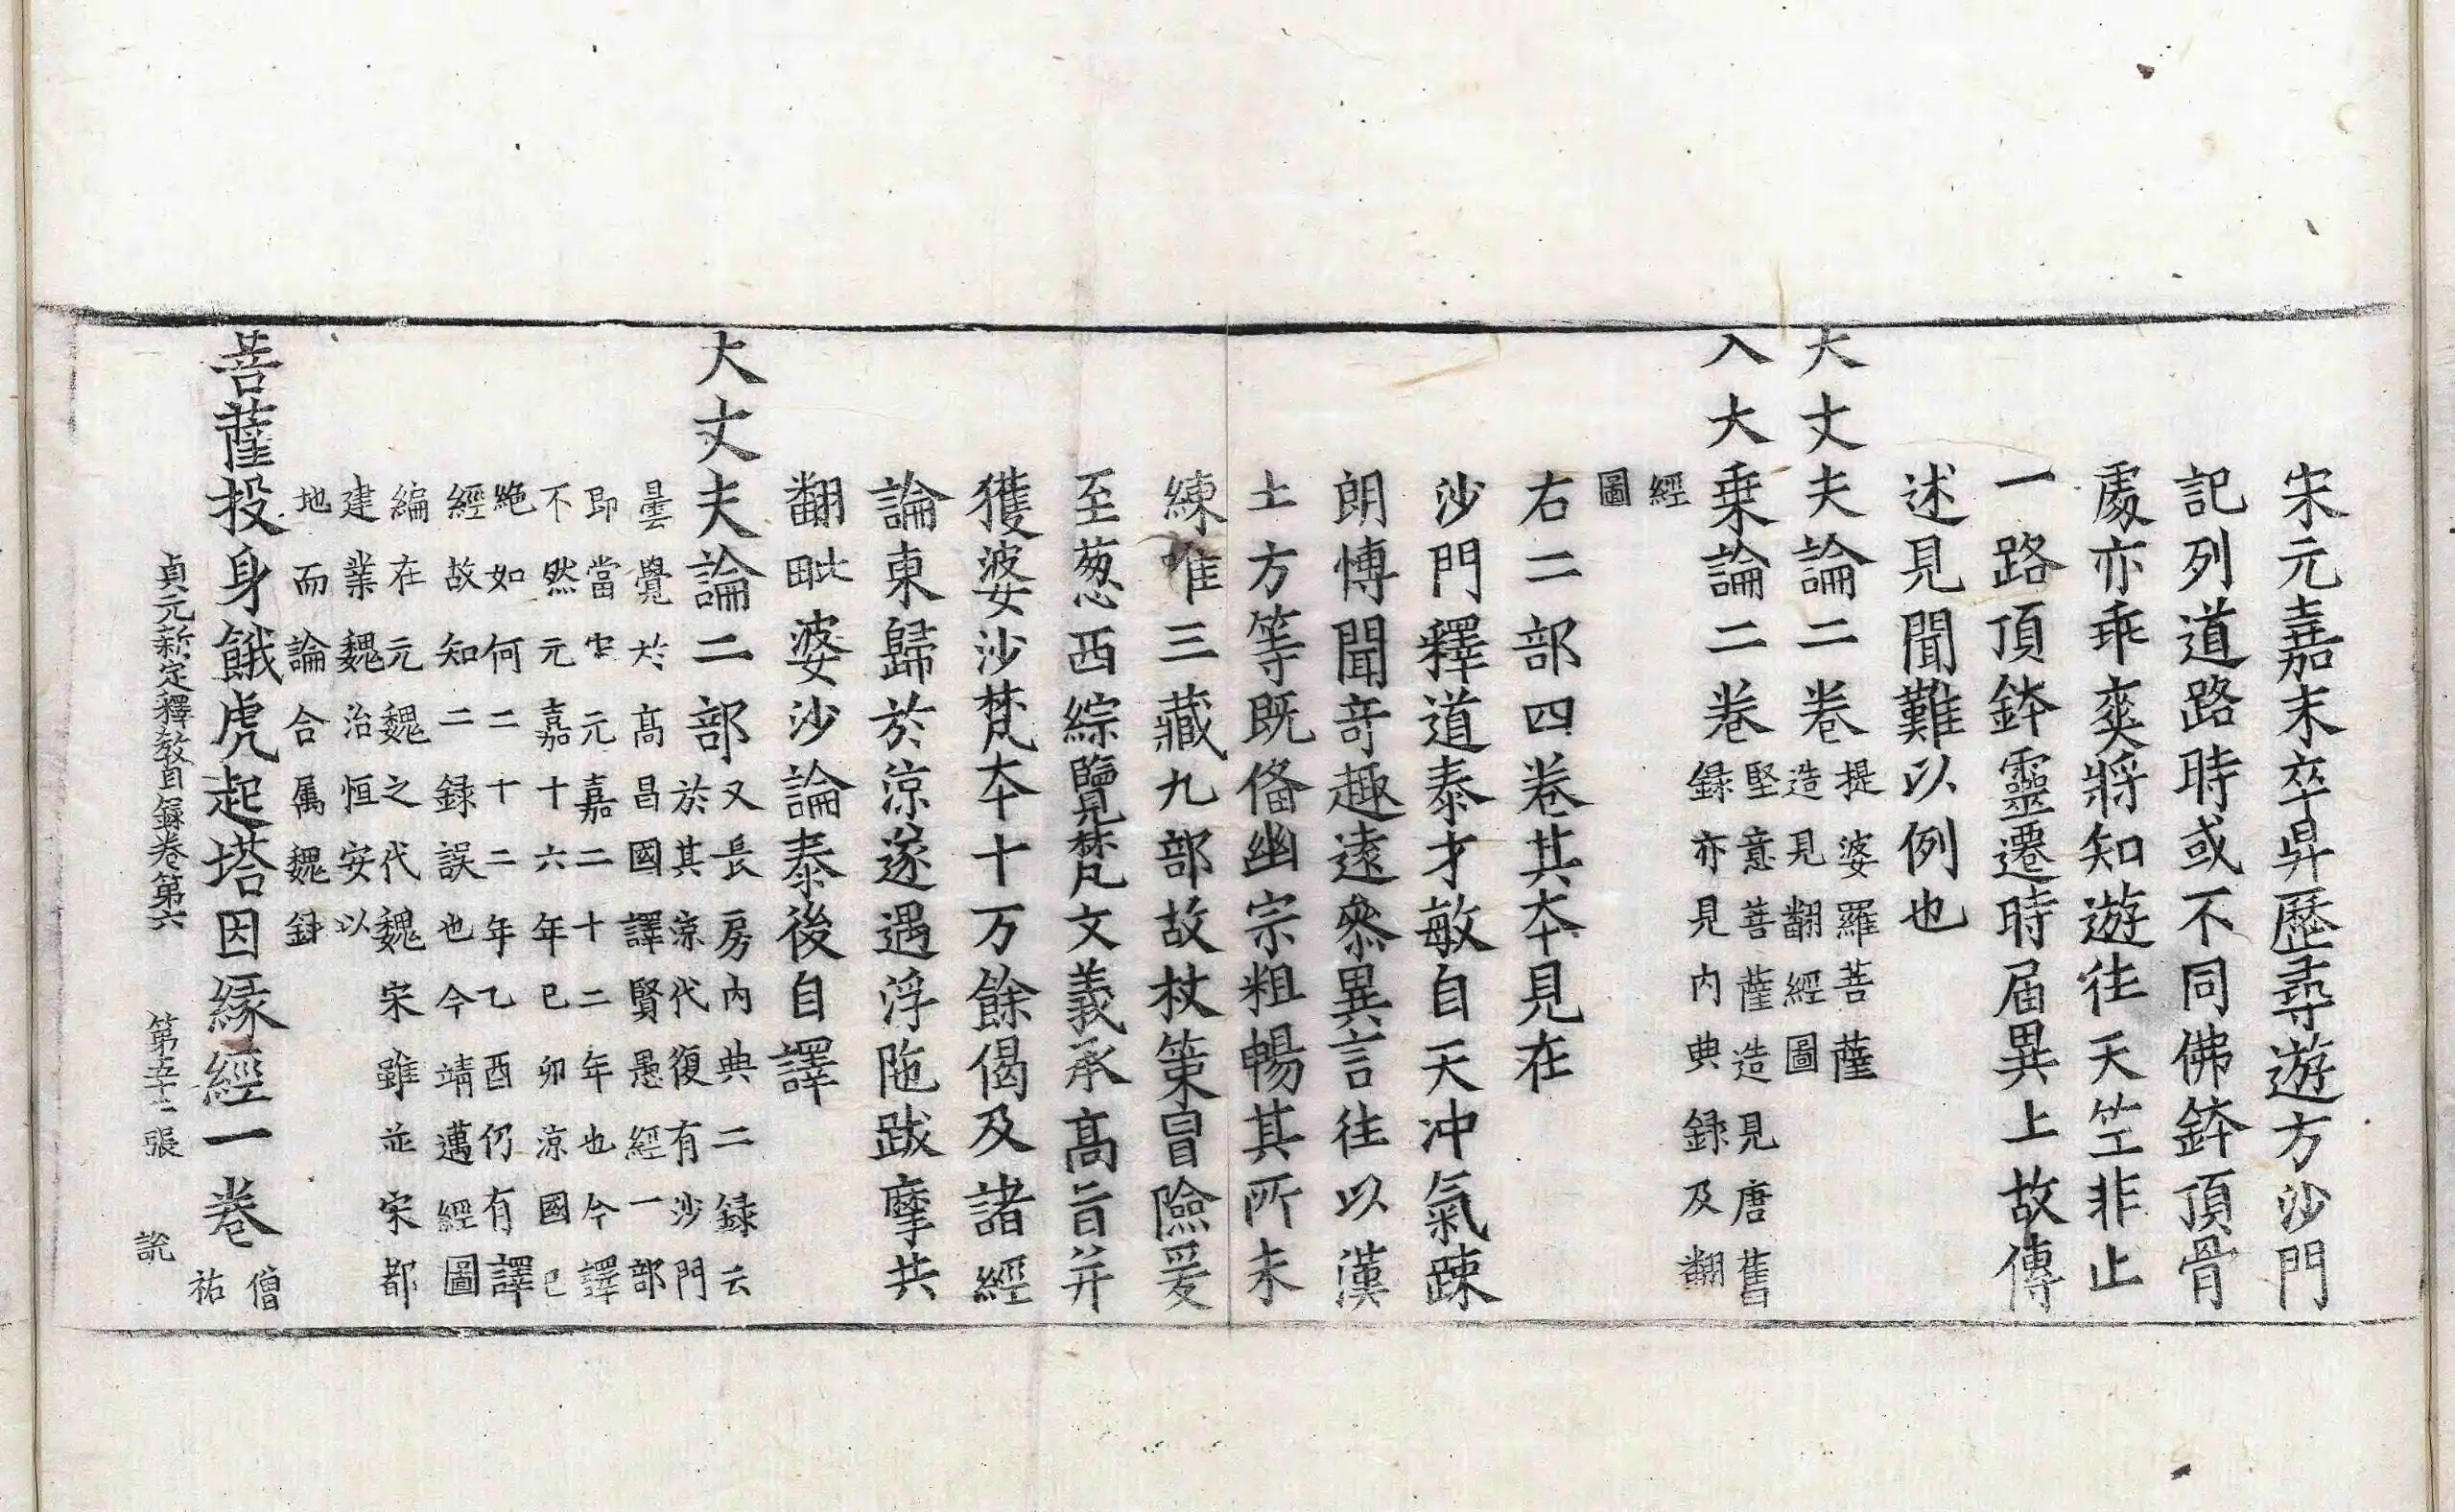 宋元嘉末卒昇歷尋遊方沙門
記列道路時或不同佛鉢頂骨
處亦乖奕將知遊往天竺非止
一路頂鉢靈遷時届異上故傳
述見聞難以例也
大丈夫論二巻提婆羅菩薩
造見翻經圖
入大乗論二巻堅意菩薩造見唐舊
録亦見内典録及翻
經
圖
右二部四巻其夲見在
沙門釋道泰才敏自天冲氣疎
朗愽聞竒趣遠叅異言往以漢
土方等既俻幽宗粗暢其所未
練唯三藏九部故杖策冒險爰
至葱西綜覽梵文義承髙旨并
獲婆沙梵夲十万餘偈及諸經
論東歸於涼遂遇浮陁跋摩共
翻毗婆沙論泰後自譯
大丈夫論二部又長房内典二録云
於其涼代復有沙門
曇覺於髙昌國譯賢愚經一部
即當宋元嘉二十二年也今譯
不然元嘉十六年已卯涼國已
絶如何二十二年乙酉仍有譯
經故知二録誤也今靖邁經圖
編在元魏之代魏宋雖並宋都
建業魏治恒安以
地而論合属魏録
菩薩投身餓虎起塔因縁經一巻僧
祐
貞元新定釋教目録巻第六 第五十二張